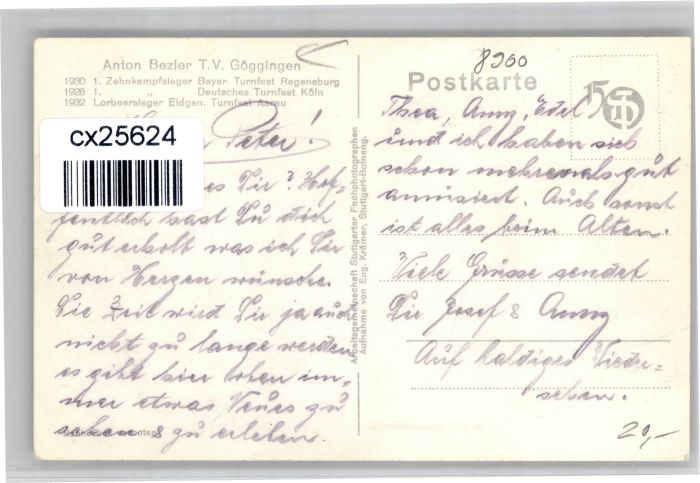 Anton Bezler T.V. Göggingen
1930 1. Zehnkampfsieger Bayer. Turnfest Regensburg
1928 1. " Deutsches Turnfest Köln
1932 Lorbeersieger Eidgen. Turnfest Aarau
Peter!
cx25624
es Dir? Hof-
fentlich hast Du dich
gut erholt was ich Dir
von Herzen wünsche.
Die Zeit wird Dir ja auch
nicht zu lange werden,
es gibt hier oben im-
mer etwas Neues zu
sehen & zu erleben.
Arbeitsgemeinschaft Stuttgarter Fachphotographen
Aufnahme von Eug. Krämer, Stuttgart-Botnang.
8900
Postkarte
Thea, Anny, Edel
und ich haben sich
schon mehremals gut
amüsiert. Auch sonst
ist alles beim Alten.
Viele Grüsse sendet
Dir Josef & Anny
Auf baldiges Wieder-
sehen.
20,-